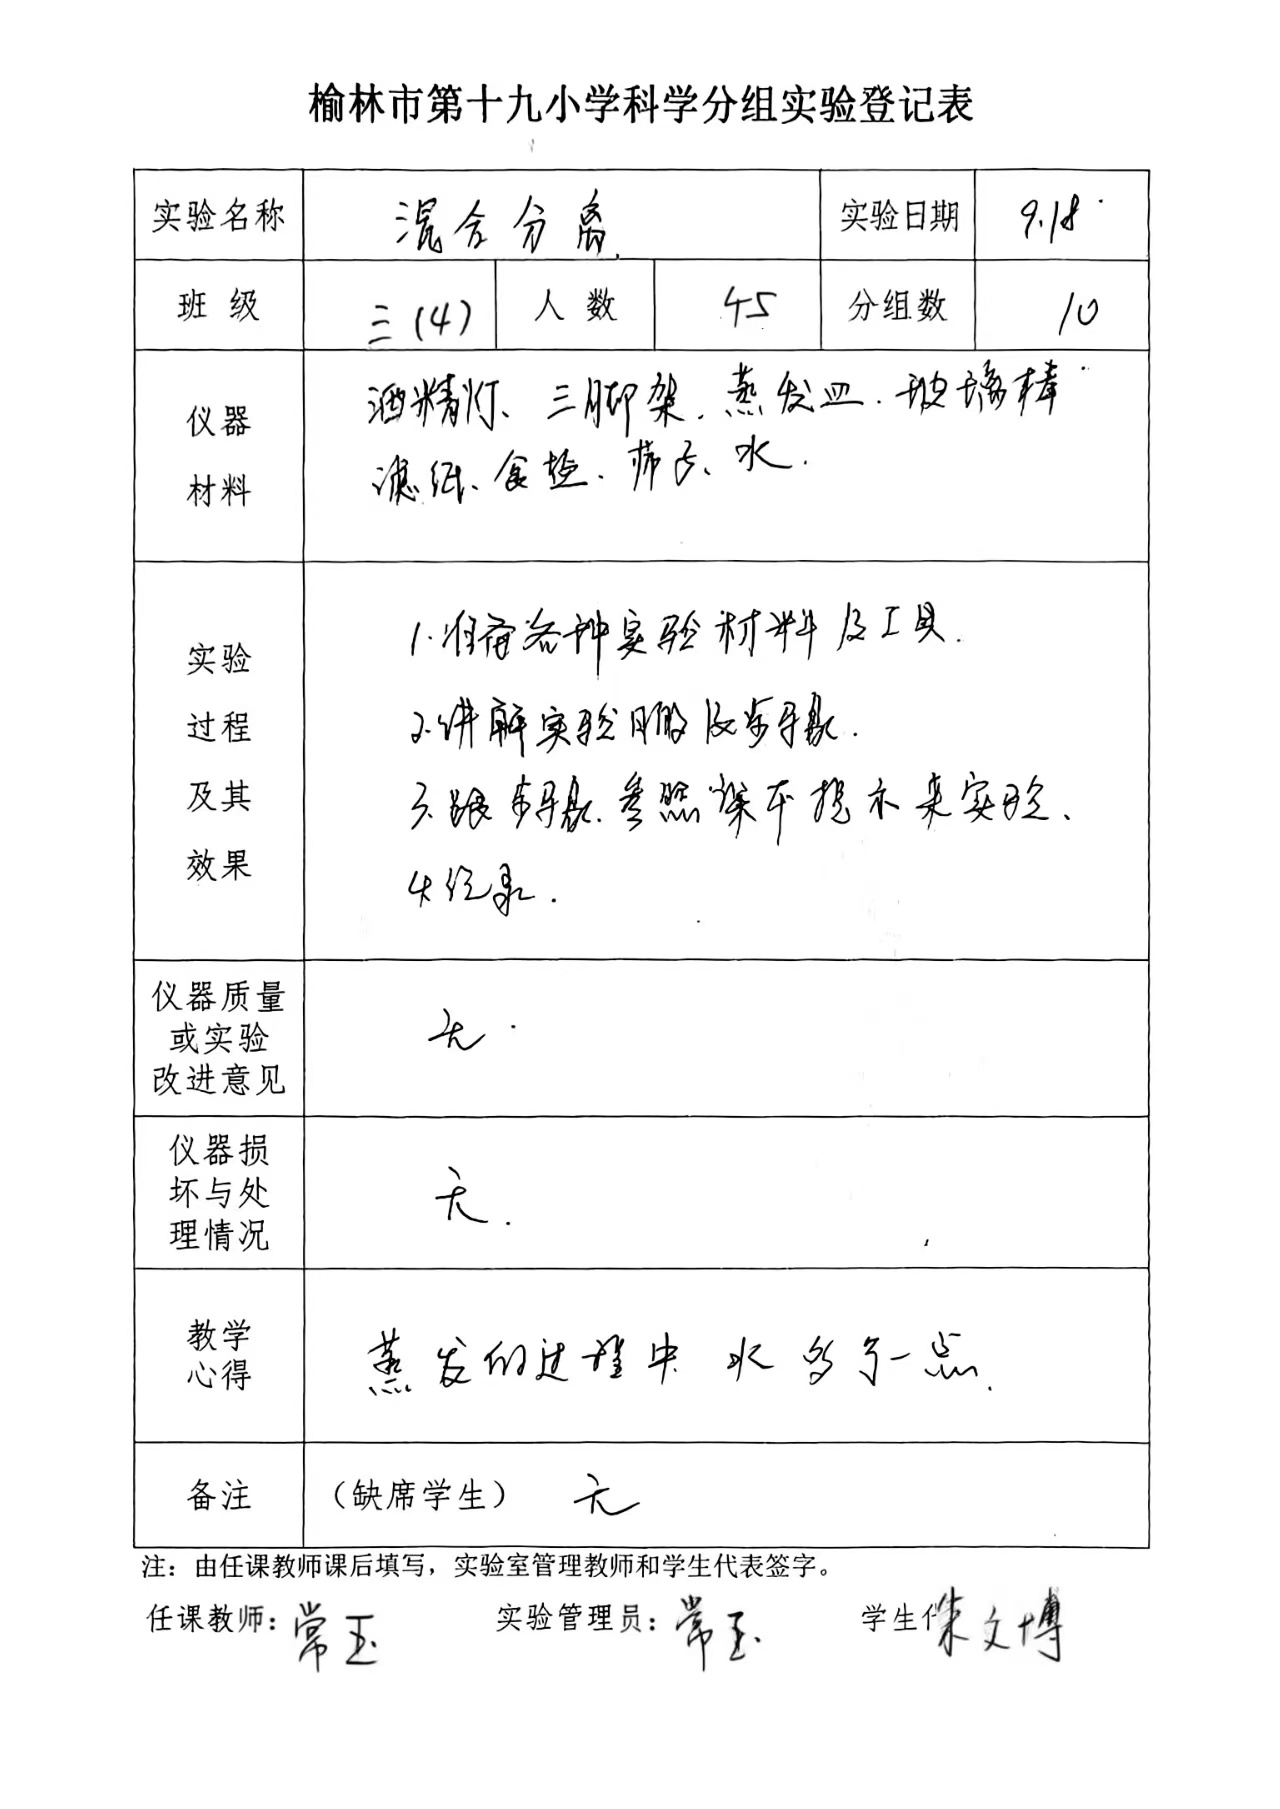 榆林市第十九小学科学分组实验登记表
实验名称 混合分离 实验日期 9.18
班级 三(4) 人数 45 分组数 10
仪器材料
酒精灯、三脚架、蒸发皿、玻璃棒
滤纸、食盐、筛子、水.
实验过程及其效果
1.准备各种实验材料及工具.
2.讲解实验 及步骤.
3.跟步骤.参照课本提示来实验、
4.记录.
仪器质量或实验改进意见 无.
仪器损坏与处理情况 无.
教学心得 蒸发的过程中 水 多了一点.
备注 （缺席学生） 无
注：由任课教师课后填写，实验室管理教师和学生代表签字。
任课教师：常玉 实验管理员：常玉 学生代 朱文博